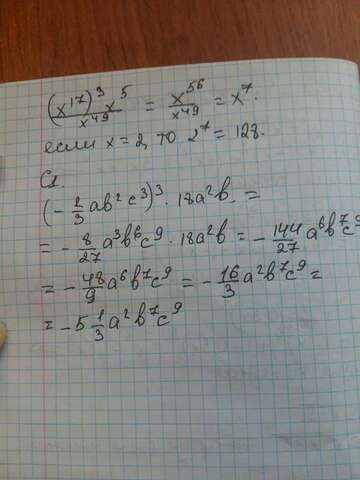 (x^17)^3 x^5 / x^49 = x^56 / x^49 = x^7.
если x = 2, то 2^7 = 128.
C1.
(-2/3 ab^2 c^3)^3 · 18a^2b. =
= -8/27 a^3b^6c^9 · 18a^2b = -144/27 a^6b^7c^9
= -48/9 a^6b^7c^9 = -16/3 a^2b^7c^9 =
= -5 1/3 a^2b^7c^9